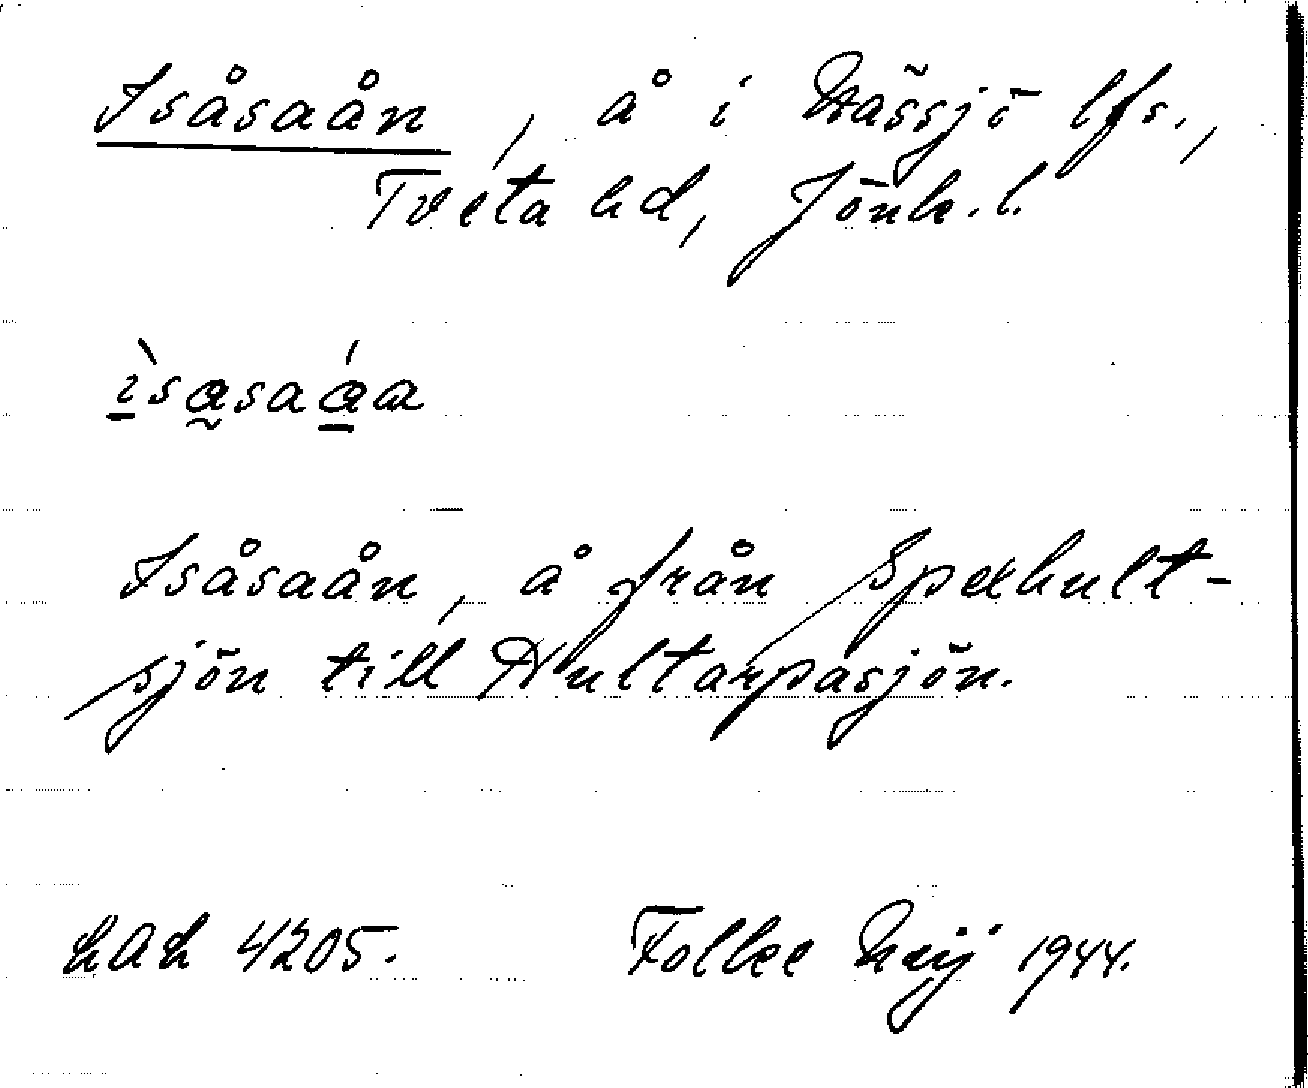 Isåsaån, å i Nässjö lfs.,
Tveta hd, Jönk. l.
ìsasaáa
Isåsaån, å från Spexhult-
sjön till Hultarpasjön.
4205. Folke 1944.